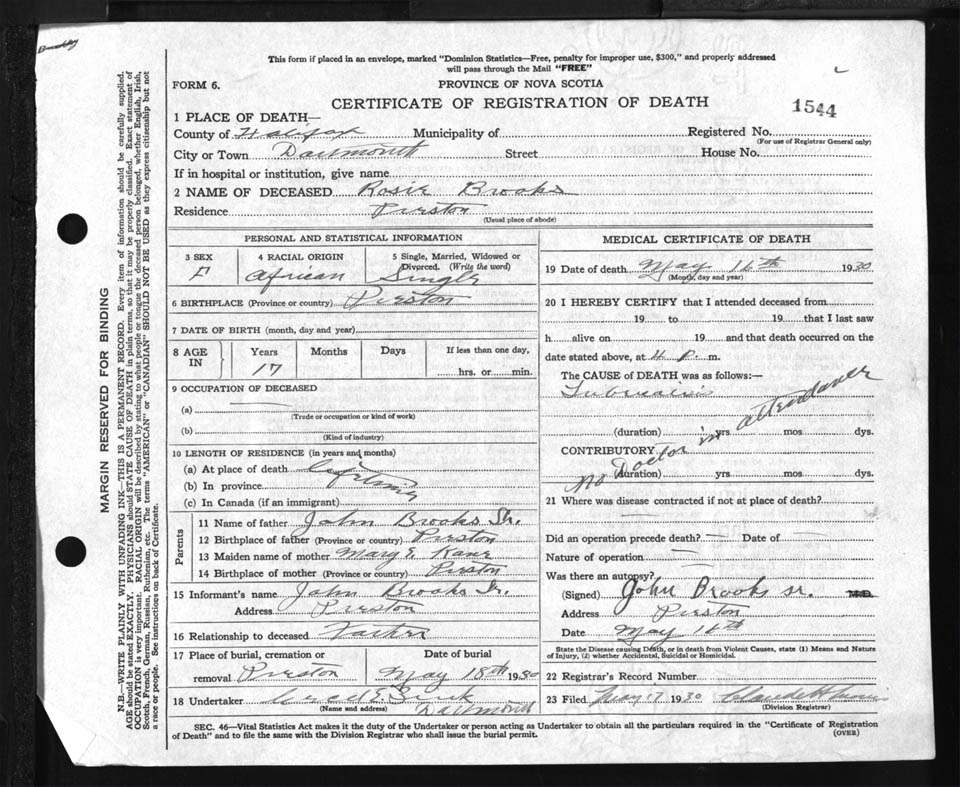 This form if placed in an envelope, marked "Dominion Statistics—Free, penalty for improper use, $300," and properly addressed
will pass through the Mail "FREE"
FORM 6.
PROVINCE OF NOVA SCOTIA
CERTIFICATE OF REGISTRATION OF DEATH
1544
1 PLACE OF DEATH—
County of Halifax Municipality of Registered No.
(For use of Registrar General only)
City or Town Dartmouth Street House No.
If in hospital or institution, give name
2 NAME OF DECEASED Rosie Brooks
Residence Preston
(Usual place of abode)
PERSONAL AND STATISTICAL INFORMATION
3 SEX 4 RACIAL ORIGIN 5 Single, Married, Widowed or
Divorced. (Write the word)
F African Single
6 BIRTHPLACE (Province or country) Preston
7 DATE OF BIRTH (month, day and year)
8 AGE IN Years Months Days If less than one day,
17 hrs. or min.
9 OCCUPATION OF DECEASED
(a)
(Trade or occupation or kind of work)
(b)
(Kind of industry)
10 LENGTH OF RESIDENCE (in years and months)
(a) At place of death Lifetime
(b) In province
(c) In Canada (if an immigrant)
Parents
11 Name of father John Brooks Sr.
12 Birthplace of father (Province or country) Preston
13 Maiden name of mother Mary E. Kane
14 Birthplace of mother (Province or country) Preston
15 Informant's name John Brooks Sr.
Address Preston
16 Relationship to deceased Father
17 Place of burial, cremation or Date of burial
removal Preston May 18th 1930
18 Undertaker
(Name and address) Dartmouth
MEDICAL CERTIFICATE OF DEATH
19 Date of death May 16th 1930
(Month, day and year)
20 I HEREBY CERTIFY that I attended deceased from
19 to 19 that I last saw
h alive on 19 and that death occurred on the
date stated above, at 4 P. m.
The CAUSE of DEATH was as follows:—
(duration) yrs mos dys.
CONTRIBUTORY
(duration) yrs mos dys.
No Doctor in attendance
21 Where was disease contracted if not at place of death?
Did an operation precede death? Date of
Nature of operation
Was there an autopsy?
(Signed) John Brooks sr. M.D.
Address Preston
Date May 16th
State the Disease causing Death, or in death from Violent Causes, state (1) Means and Nature
of Injury, (2) whether Accidental, Suicidal or Homicidal.
22 Registrar's Record Number
23 Filed May 17 1930
(Division Registrar)
SEC. 46—Vital Statistics Act makes it the duty of the Undertaker or person acting as Undertaker to obtain all the particulars required in the "Certificate of Registration
of Death" and to file the same with the Division Registrar who shall issue the burial permit.
(OVER)
MARGIN RESERVED FOR BINDING
N.B.—WRITE PLAINLY WITH UNFADING INK—THIS IS A PERMANENT RECORD. Every item of information should be carefully supplied.
AGE should be stated EXACTLY. PHYSICIANS should STATE CAUSE OF DEATH in plain terms, so that it may be properly classified. Exact statement of
OCCUPATION is very important. RACIAL ORIGIN will be described by stating to what people or tongue the deceased person belonged, whether English, Irish,
Scotch, French, German, Russian, Ruthenian, etc. The terms "AMERICAN" or "CANADIAN" SHOULD NOT BE USED as they express citizenship but not
a race or people. See instructions on back of Certificate.